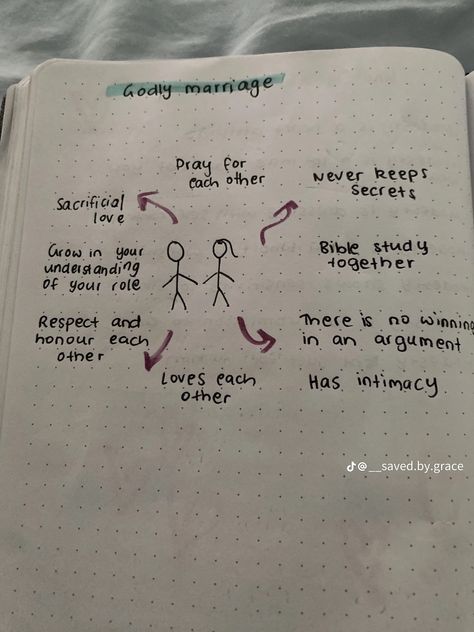 Godly marriage
Pray for
each other
Never keeps
secrets
Sacrificial
love
Grow in your
understanding
of your role
Bible study
together
Respect and
honour each
other
There is no winning
in an argument
Loves each
other
Has intimacy
@__saved.by.grace